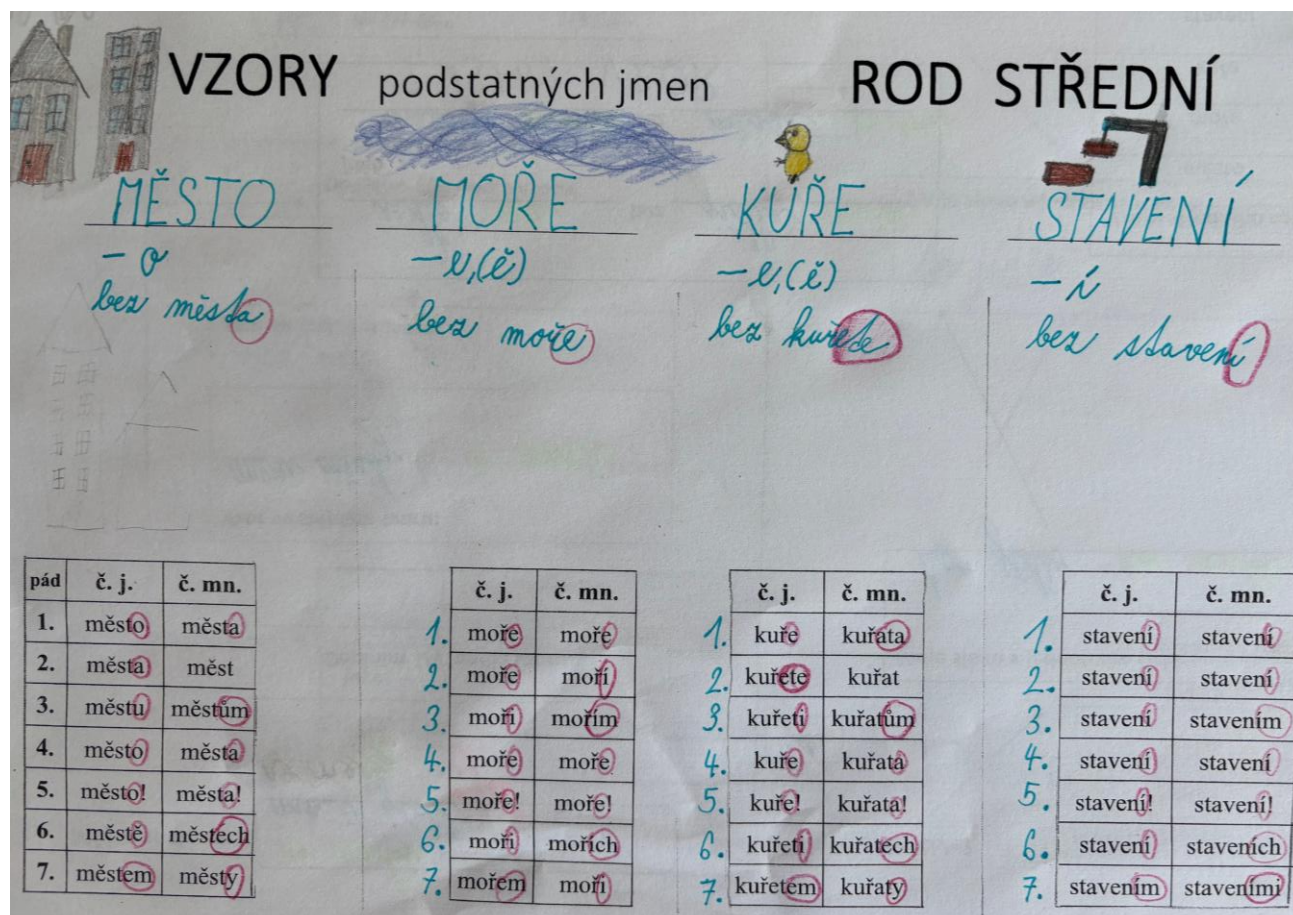 VZORY podstatných jmen ROD STŘEDNÍ
MĚSTO MOŘE KUŘE STAVENÍ
- o - e, (ě) - e, (ě) - í
bez města bez moře bez kuřete bez stavení
pád č. j. č. mn.
1. město města
2. města měst
3. městu městům
4. město města
5. město! města!
6. městě městech
7. městem městy
č. j. č. mn.
1. moře moře
2. moře moří
3. moři mořím
4. moře moře
5. moře! moře!
6. moři mořích
7. mořem moři
č. j. č. mn.
1. kuře kuřata
2. kuřete kuřat
3. kuřeti kuřatům
4. kuře kuřata
5. kuře! kuřata!
6. kuřeti kuřatech
7. kuřetem kuřaty
č. j. č. mn.
1. stavení stavení
2. stavení stavení
3. stavení stavením
4. stavení stavení
5. stavení! stavení!
6. stavení staveních
7. stavením staveními